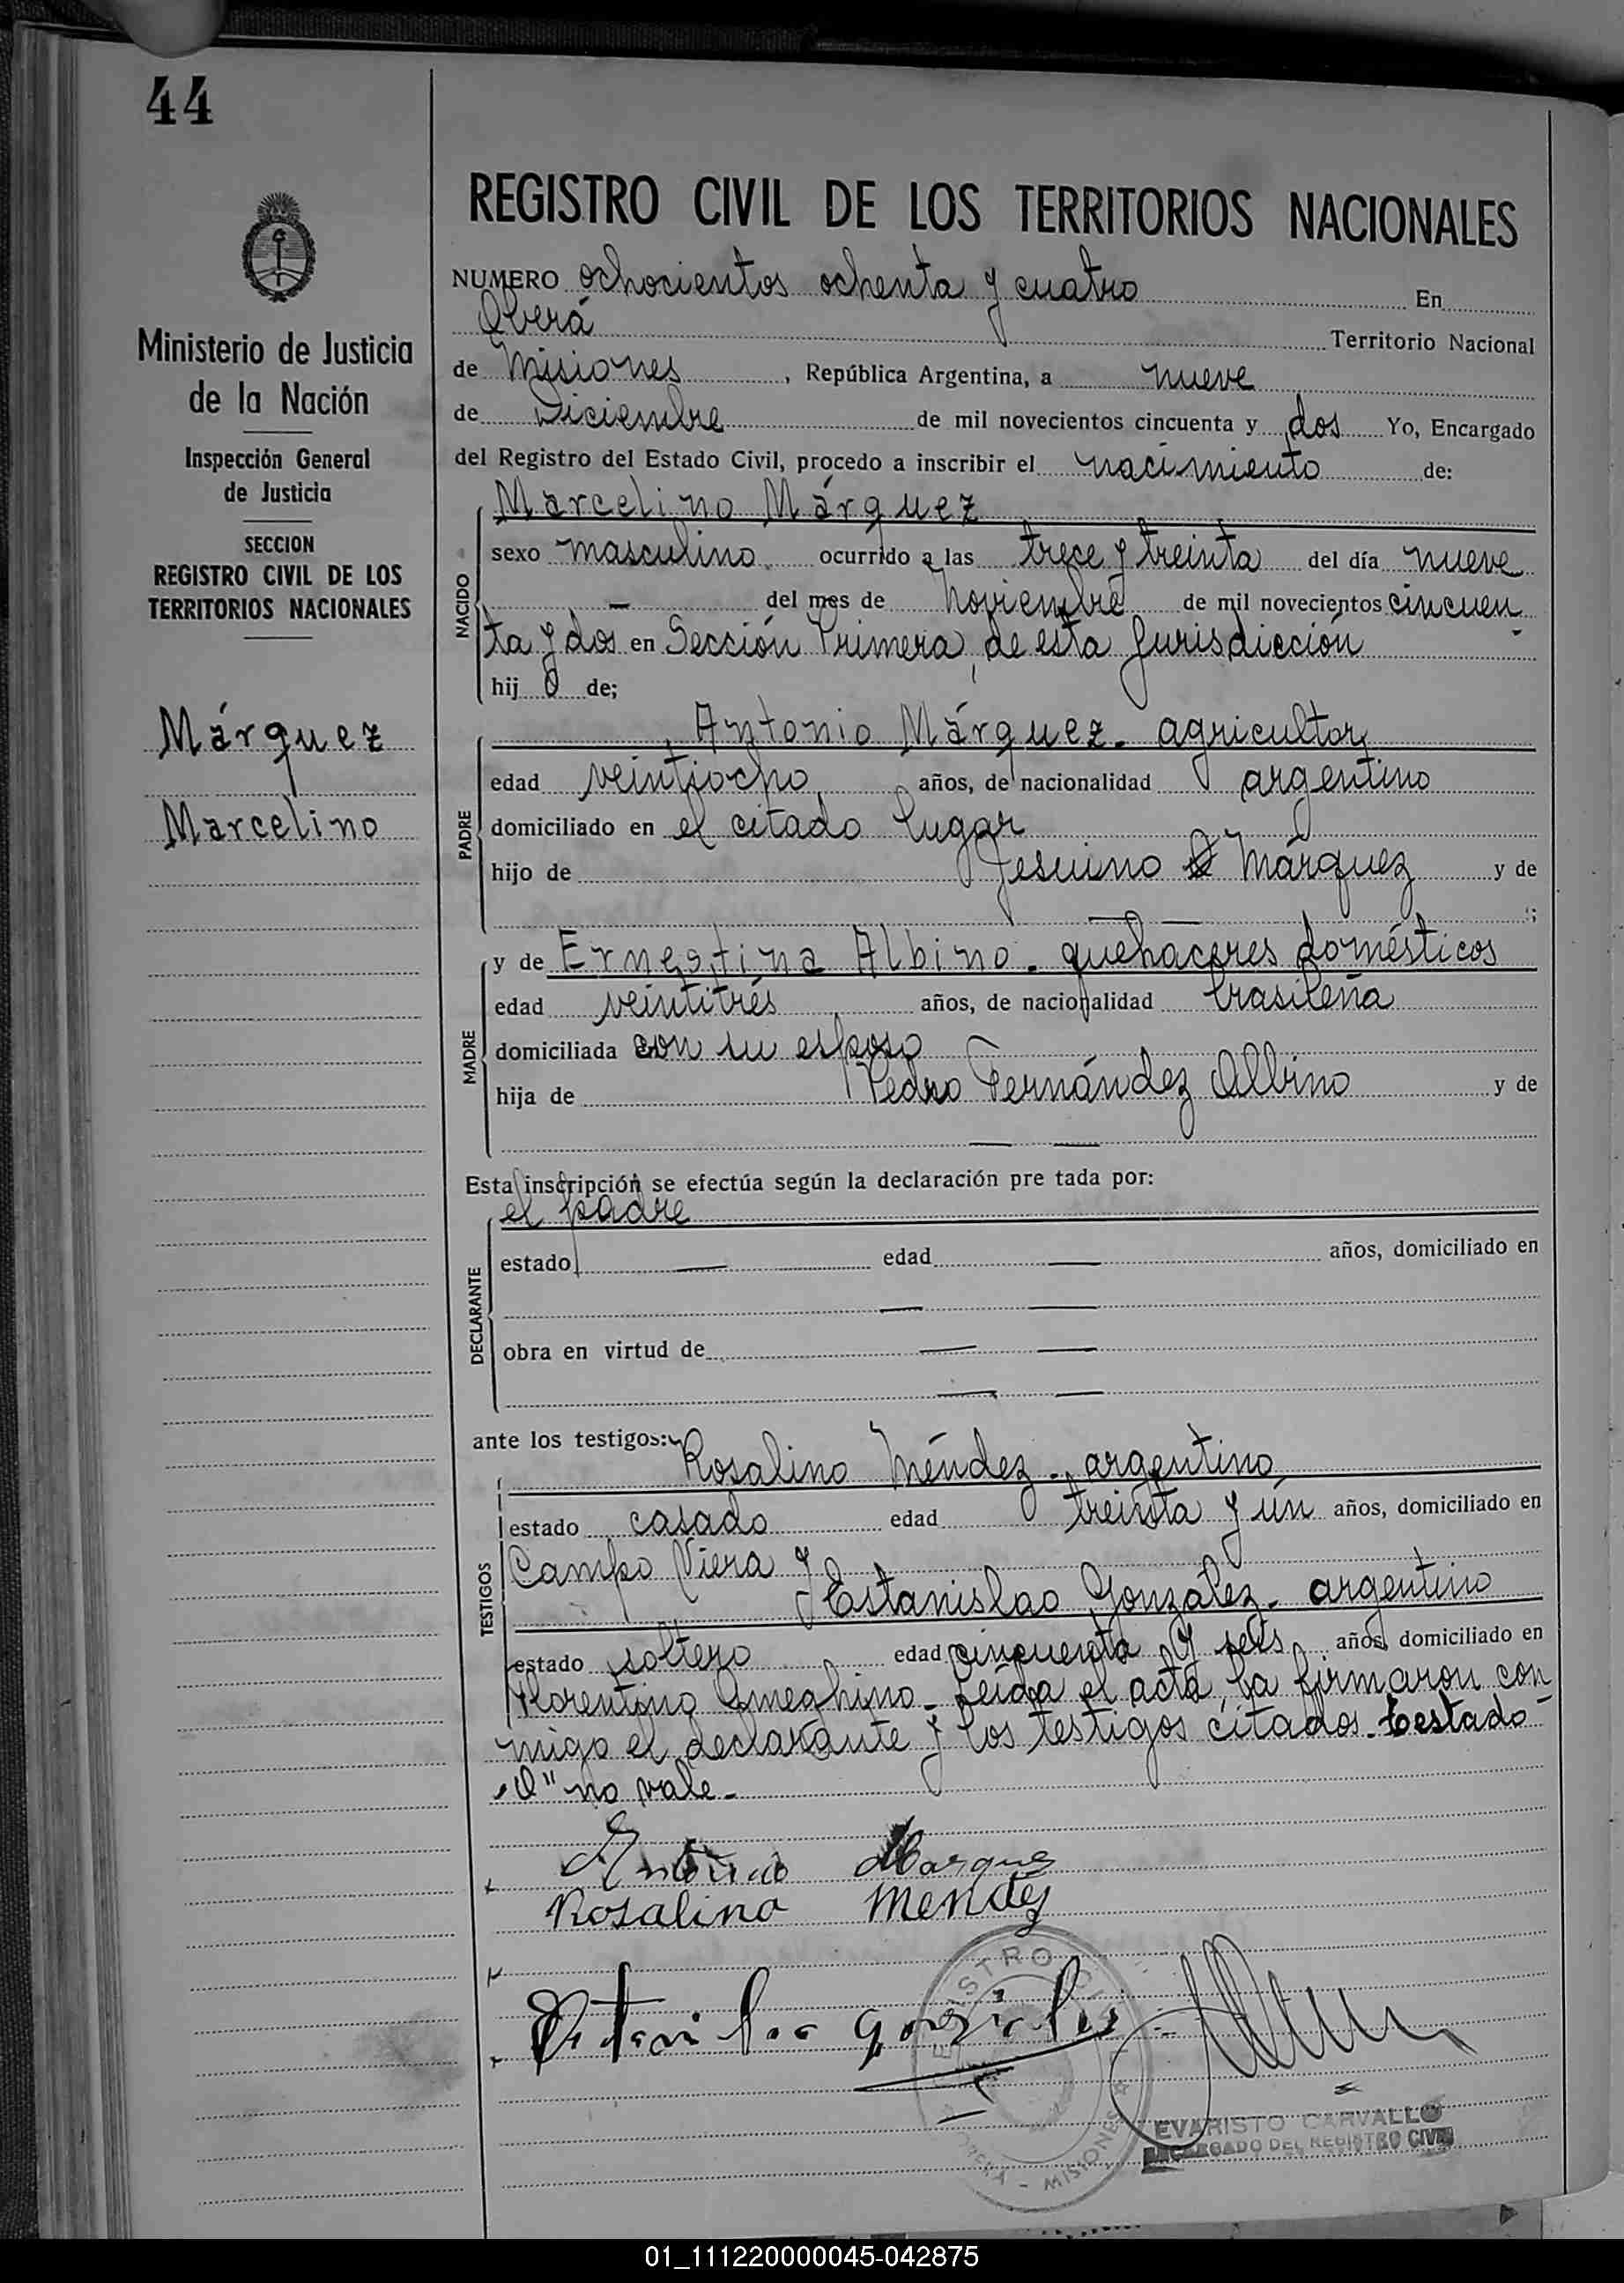 44
REGISTRO CIVIL DE LOS TERRITORIOS NACIONALES
NUMERO ochocientos ochenta y cuatro En
Oberá Territorio Nacional
de Misiones, República Argentina, a nueve
de Diciembre de mil novecientos cincuenta y dos Yo, Encargado
del Registro del Estado Civil, procedo a inscribir el nacimiento de:
Ministerio de Justicia
de la Nación
Inspección General
de Justicia
SECCION
REGISTRO CIVIL DE LOS
TERRITORIOS NACIONALES
Márquez
Marcelino
NACIDO
Marcelino Márquez
sexo masculino ocurrido a las trece y treinta del día nueve
— del mes de Noviembre de mil novecientos cincuen
ta y dos en Sección Primera, de esta Jurisdicción
hij o de;
PADRE
Antonio Márquez. agricultor
edad veintiocho años, de nacionalidad argentino
domiciliado en el citado lugar
hijo de Jesuino O Márquez y de
— — ;
MADRE
y de Ernestina Albino. quehaceres domésticos
edad veintitrés años, de nacionalidad brasileña
domiciliada con su esposo
hija de Pedro Fernández Albino y de
— —
Esta inscripción se efectúa según la declaración pre tada por:
DECLARANTE
el padre
estado — edad — años, domiciliado en
— —
obra en virtud de — —
— —
ante los testigos:
TESTIGOS
Rosalino Méndez. argentino
estado casado edad treinta y ún años, domiciliado en
Campo Viera y
Estanislao González. argentino
estado soltero edad cincuenta y seis años, domiciliado en
Florentino Ameghino. Leída el acta, la firmaron con
migo el declarante y los testigos citados. Testado
"O" no vale.-
Antonio Marque
Rosalino Mendez
Estanislao González
REGISTRO CIVIL
OBERÁ - MISIONES
EVARISTO CARVALLO
ENCARGADO DEL REGISTRO CIVIL
01_111220000045-042875